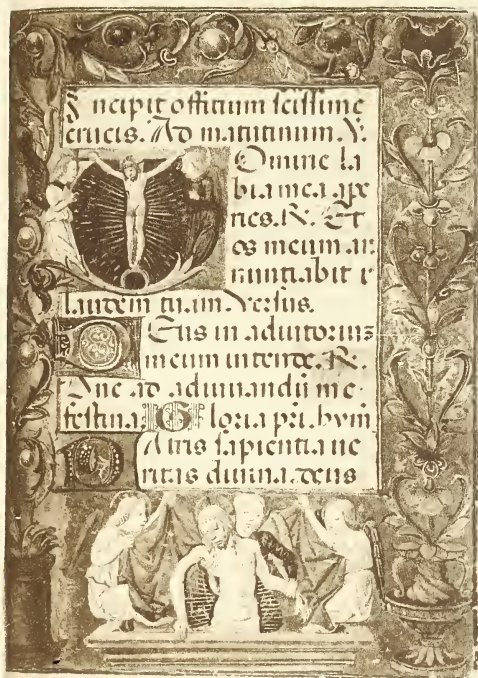 Incipit offitium scissime
crucis. Ad matutinum. V.
Omine la
bia mea ape
ries. R. Et
os meum an
nuntiabit
laudem tuam. Versus.
Eus in adiutorium
meum intende. R.
One ad adiuuandū me
festina. Gloria pri. hym
Atris sapientia ue
ritas diuina deus